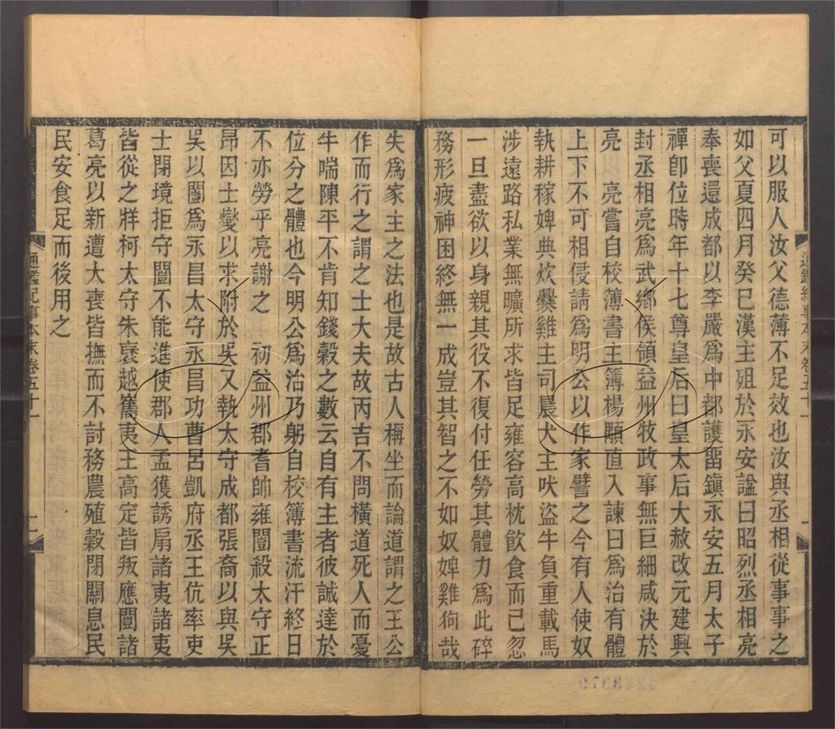 通鑑紀事本末卷五十一
可以服人汝父德薄不足效也汝與丞相從事事之
如父夏四月癸巳漢主殂於永安諡曰昭烈丞相亮
奉喪還成都以李嚴爲中都護畱鎭永安五月太子
禪卽位時年十七尊皇后曰皇太后大赦改元建興
封丞相亮爲武鄉侯領益州牧政事無巨細咸決於
亮　亮嘗自校簿書主簿楊顒直入諫曰爲治有體
上下不可相侵請爲明公以作家譬之今有人使奴
執耕稼婢典炊爨雞主司晨犬主吠盜牛負重載馬
涉遠路私業無曠所求皆足雍容高枕飮食而已忽
一旦盡欲以身親其役不復付任勞其體力爲此碎
務形疲神困終無一成豈其智之不如奴婢雞狗哉
失爲家主之法也是故古人稱坐而論道謂之王公
作而行之謂之士大夫故丙吉不問橫道死人而憂
牛喘陳平不肯知錢穀之數云自有主者彼誠達於
位分之體也今明公爲治乃躬自校簿書流汗終日
不亦勞乎亮謝之　初益州郡耆帥雍闓殺太守正
昂因士燮以求附於吳又執太守成都張裔以與吳
吳以闓爲永昌太守永昌功曹呂凱府丞王伉率吏
士閉境拒守闓不能進使郡人孟獲誘扇諸夷諸夷
皆從之牂柯太守朱襃越嶲夷王高定皆叛應闓諸
葛亮以新遭大喪皆撫而不討務農殖穀閉關息民
民安食足而後用之
通鑑紀事本末卷五十一